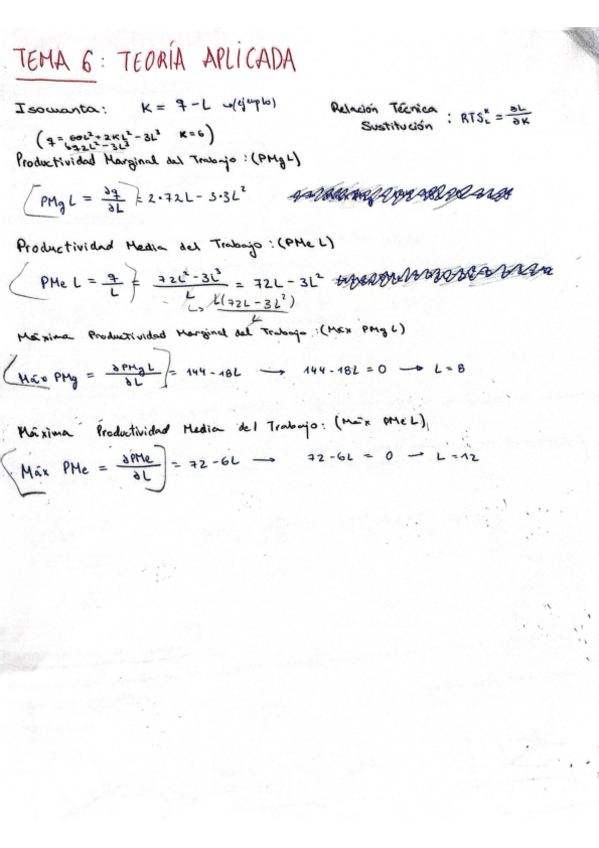 TEMA 6: TEORÍA APLICADA
Isocuanta: K = q - L → (ejemplo)
Relación Técnica Sustitución : RTS^K_L = ∂L/∂K
(q = 60L² + 2KL² - 3L³ K=6)
72L² - 3L³
Productividad Marginal del Trabajo: (PMgL)
PMgL = ∂q/∂L = 2·72L - 3·3L²
Productividad Media del Trabajo: (PMe L)
PMe L = q/L = 72L² - 3L³/L = 72L - 3L²
↳ L(72L - 3L²)/L
Máxima Productividad Marginal del Trabajo: (Máx PMgL)
Máx PMg = ∂PMgL/∂L = 144 - 18L → 144 - 18L = 0 → L = 8
Máxima Productividad Media del Trabajo: (Máx PMe L)
Máx PMe = ∂PMe/∂L = 72 - 6L → 72 - 6L = 0 → L = 12